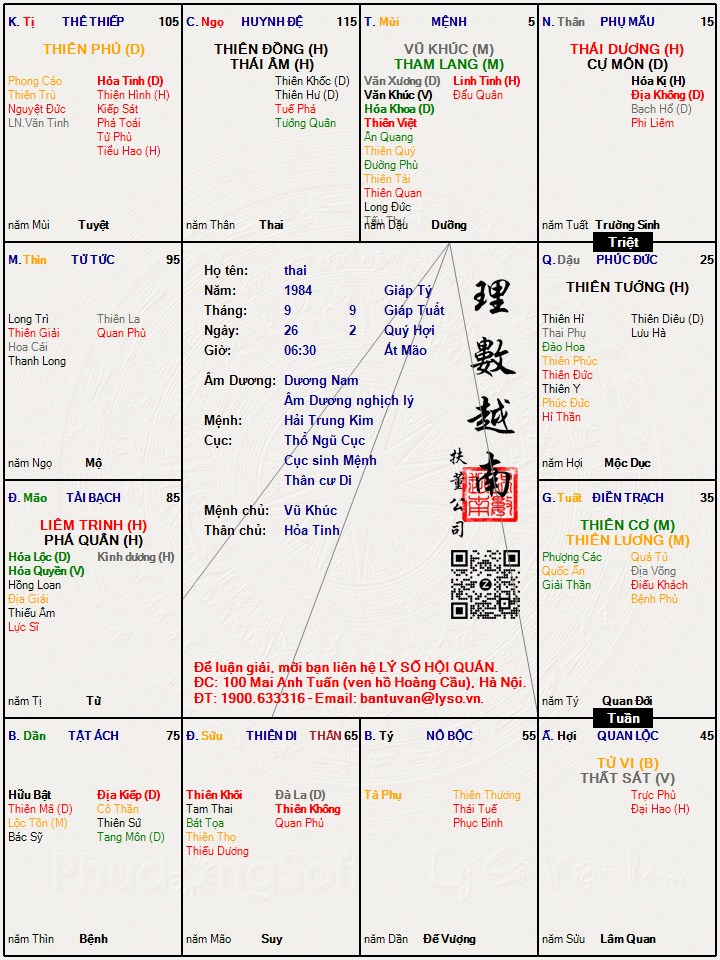 K. Tị THÊ THIẾP 105
THIÊN PHỦ (D)
Phong Cáo
Thiên Trù
Nguyệt Đức
LN.Văn Tinh
Hỏa Tinh (D)
Thiên Hình (H)
Kiếp Sát
Phá Toái
Tử Phù
Tiểu Hao (H)
năm Mùi Tuyệt
C. Ngọ HUYNH ĐỆ 115
THIÊN ĐỒNG (H)
THÁI ÂM (H)
Thiên Khốc (D)
Thiên Hư (D)
Tuế Phá
Tướng Quân
năm Thân Thai
T. Mùi MỆNH 5
VŨ KHÚC (M)
THAM LANG (M)
Văn Xương (D)
Văn Khúc (V)
Hóa Khoa (D)
Thiên Việt
Ân Quang
Thiên Quý
Đường Phù
Thiên Tài
Thiên Quan
Long Đức
Tấu Thư
Linh Tinh (H)
Đẩu Quân
năm Dậu Dưỡng
N. Thân PHỤ MẪU 15
THÁI DƯƠNG (H)
CỰ MÔN (D)
Hóa Kị (H)
Địa Không (D)
Bạch Hổ (D)
Phi Liêm
năm Tuất Trường Sinh
Triệt
M. Thìn TỬ TỨC 95
Long Trì
Thiên Giải
Hoa Cái
Thanh Long
Thiên La
Quan Phù
năm Ngọ Mộ
Họ tên: thai
Năm: 1984 Giáp Tý
Tháng: 9 9 Giáp Tuất
Ngày: 26 2 Quý Hợi
Giờ: 06:30 Ất Mão
Âm Dương: Dương Nam
Âm Dương nghịch lý
Mệnh: Hải Trung Kim
Cục: Thổ Ngũ Cục
Cục sinh Mệnh
Thân cư Di
Mệnh chủ: Vũ Khúc
Thân chủ: Hỏa Tinh
理數越南
扶董公司
Để luận giải, mời bạn liên hệ LÝ SỐ HỘI QUÁN.
ĐC: 100 Mai Anh Tuấn (ven hồ Hoàng Cầu), Hà Nội.
ĐT: 1900.633316 - Email: bantuvan@lyso.vn.
Q. Dậu PHÚC ĐỨC 25
THIÊN TƯỚNG (H)
Thiên Hỉ
Thai Phụ
Đào Hoa
Thiên Phúc
Thiên Đức
Thiên Y
Phúc Đức
Hỉ Thần
Thiên Diêu (D)
Lưu Hà
năm Hợi Mộc Dục
Đ. Mão TÀI BẠCH 85
LIÊM TRINH (H)
PHÁ QUÂN (H)
Hóa Lộc (D)
Hóa Quyền (V)
Hồng Loan
Địa Giải
Thiếu Âm
Lực Sĩ
Kình dương (H)
năm Tị Tử
G. Tuất ĐIỀN TRẠCH 35
THIÊN CƠ (M)
THIÊN LƯƠNG (M)
Phượng Các
Quốc Ấn
Giải Thần
Quả Tú
Địa Võng
Điếu Khách
Bệnh Phù
năm Tý Quan Đới
Tuần
B. Dần TẬT ÁCH 75
Hữu Bật
Thiên Mã (D)
Lộc Tồn (M)
Bác Sỹ
Địa Kiếp (D)
Cô Thần
Thiên Sứ
Tang Môn (D)
năm Thìn Bệnh
Đ. Sửu THIÊN DI THÂN 65
Thiên Khôi
Tam Thai
Bát Tọa
Thiên Thọ
Thiếu Dương
Đà La (D)
Thiên Không
Quan Phủ
năm Mão Suy
B. Tý NÔ BỘC 55
Tả Phụ
Thiên Thương
Thái Tuế
Phục Binh
năm Dần Đế Vượng
Ấ. Hợi QUAN LỘC 45
TỬ VI (B)
THẤT SÁT (V)
Trực Phù
Đại Hao (H)
năm Sửu Lâm Quan